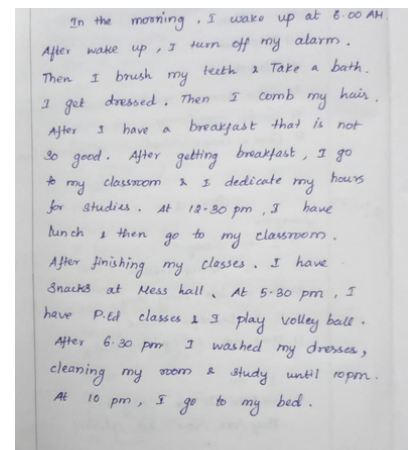 In the morning, I wake up at 6.00 AM.
After wake up, I turn off my alarm.
Then I brush my teeth & Take a bath.
I get dressed. Then I comb my hair.
After I have a breakfast that is not
so good. After getting breakfast, I go
to my classroom & I dedicate my hours
for studies. At 12-30 pm, I have
lunch & then go to my classroom.
After finishing my classes. I have
Snacks at Mess hall. At 5.30 pm, I
have P.Ed classes & I play volley ball.
After 6.30 pm I washed my dresses,
cleaning my room & study until 10pm.
At 10 pm, I go to my bed.